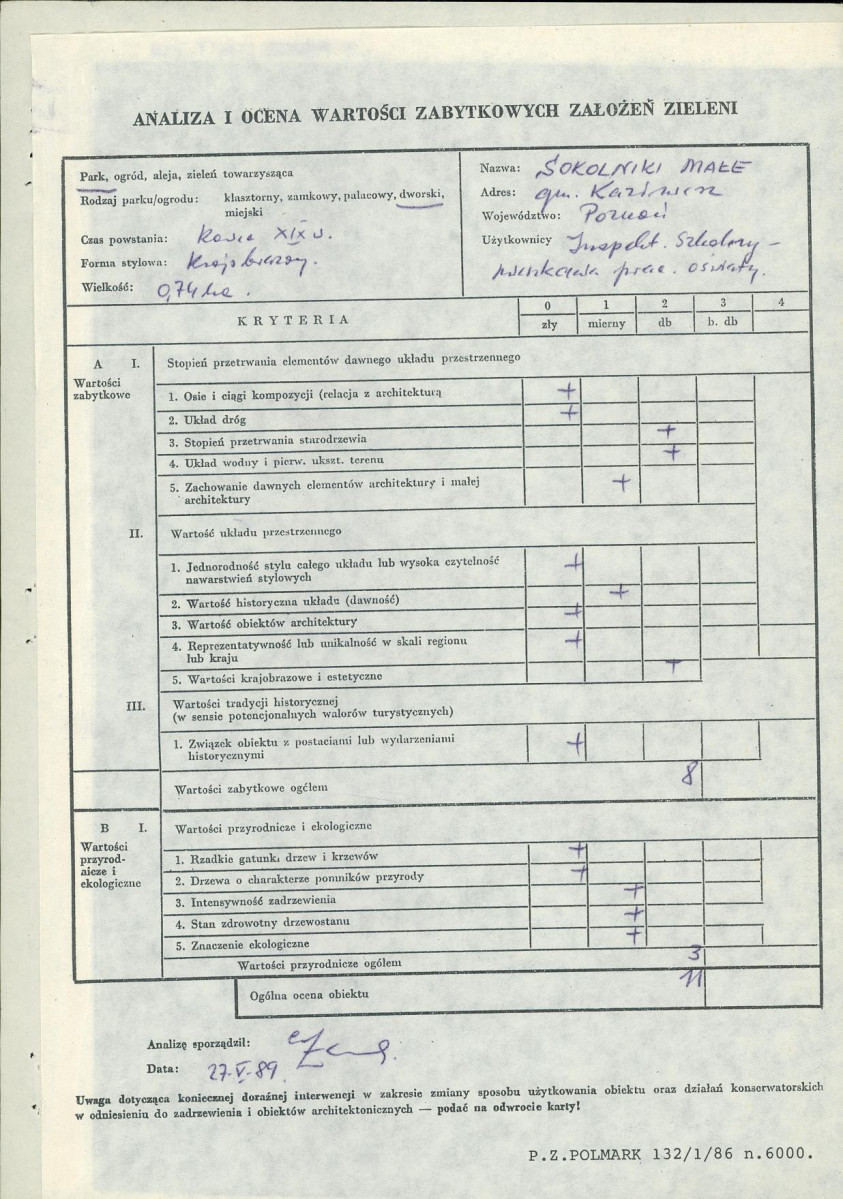 ANALIZA I OCENA WARTOŚCI ZABYTKOWYCH ZAŁOŻEŃ ZIELENI
Park, ogród, aleja, zieleń towarzysząca
Rodzaj parku/ogrodu: klasztorny, zamkowy, pałacowy, dworski,
miejski
Czas powstania: koniec XIX w.
Forma stylowa: krajobrazowy.
Wielkość: 0,74 ha.
Nazwa: SOKOLNIKI MAŁE
Adres: gm. Kaźmierz
Województwo: Poznań
Użytkownicy Inspekt. Szkolny –
mieszkania prac. oświaty.
KRYTERIA
0 1 2 3 4
zły mierny db b. db
A I. Stopień przetrwania elementów dawnego układu przestrzennego
Wartości
zabytkowe
1. Osie i ciągi kompozycji (relacja z architekturą +
2. Układ dróg +
3. Stopień przetrwania starodrzewia +
4. Układ wodny i pierw. ukszt. terenu +
5. Zachowanie dawnych elementów architektury i małej +
architektury
II. Wartość układu przestrzennego
1. Jednorodność stylu całego układu lub wysoka czytelność +
nawarstwień stylowych
2. Wartość historyczna układu (dawność) +
3. Wartość obiektów architektury +
4. Reprezentatywność lub unikalność w skali regionu +
lub kraju
5. Wartości krajobrazowe i estetyczne +
III. Wartości tradycji historycznej
(w sensie potencjonalnych walorów turystycznych)
1. Związek obiektu z postaciami lub wydarzeniami +
historycznymi
Wartości zabytkowe ogółem 8
B I. Wartości przyrodnicze i ekologiczne
Wartości
przyrod-
nicze i
ekologiczne
1. Rzadkie gatunki drzew i krzewów +
2. Drzewa o charakterze pomników przyrody +
3. Intensywność zadrzewienia +
4. Stan zdrowotny drzewostanu +
5. Znaczenie ekologiczne +
Wartości przyrodnicze ogółem 3
Ogólna ocena obiektu 11
Analizę sporządził:
Data: 27.V.89.
Uwaga dotycząca koniecznej doraźnej interwencji w zakresie zmiany sposobu użytkowania obiektu oraz działań konserwatorskich
w odniesieniu do zadrzewienia i obiektów architektonicznych — podać na odwrocie karty!
P.Z.POLMARK 132/1/86 n.6000.